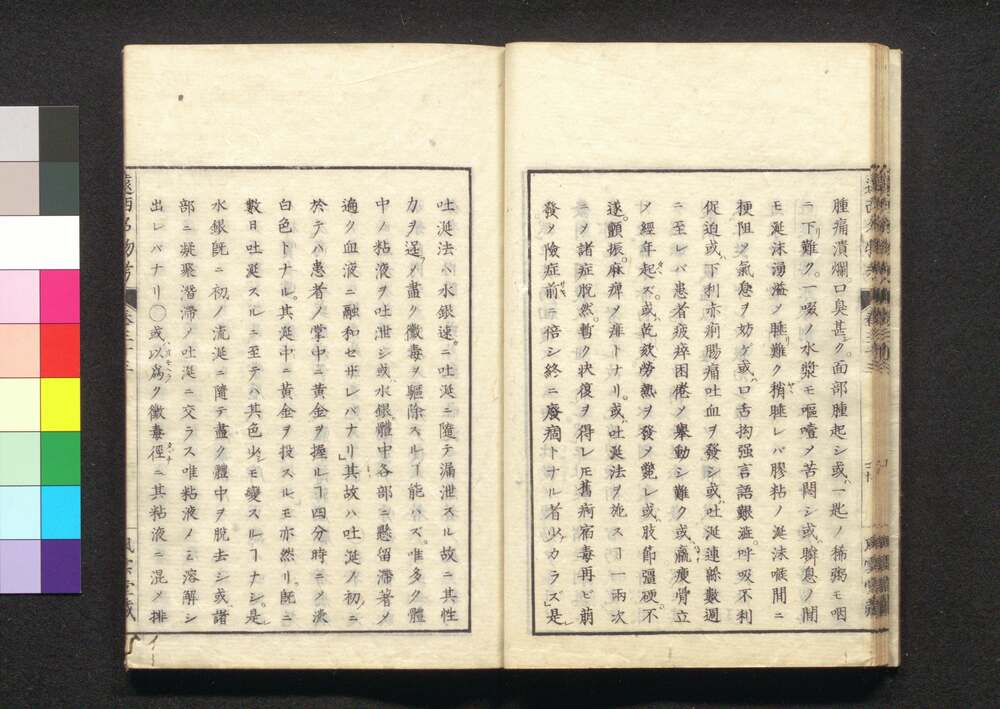 腫痛潰爛口臭甚ク。面部腫起シ或ハ一匙ノ稀粥モ咽
ニ下リ難ク。一啜ノ水漿モ嘔噎ヲ苦悶シ或ハ瞬息ノ間
モ涎沫湧溢ノ睡リ難ク稍睡レバ膠粘ノ涎沫喉間ニ
梗阻ヲ氣息ヲ妨ゲ或ハ口舌拘强言語艱澁呼吸不利
促迫或ハ下利赤痢腸痛吐血ヲ發シ或ハ吐涎連緜數週
ニ至レバ患者疲瘁困倦ノ舉動シ難ク或ハ羸瘦骨立
ノ經年起タズ。或ハ乾欬勞熱ヲ發ノ斃レ或ハ肢節彊硬不
遂。顫振。麻痺ノ痱トナリ。或ハ吐涎法ヲ施スヿ一兩次
ニノ諸症脫然。暫ク狀復ヲ得レモ舊痾宿毒再ビ萠
發ノ險症前ニ倍シ終ニ廢痼トナル者少カラズ」是レ
吐涎法ハ水銀速ニ吐涎ニ隨テ漏泄スル故ニ其性
力ヲ逞ノ盡ク黴毒ヲ驅除スルヿ能ハズ。唯多ク體
中ノ粘液ヲ吐泄シ或ハ水銀體中各部ニ懸留滯著ノ
適ク血液ニ融和セザレバナリ」其故ハ吐涎ノ初ニ
於テハ患者ノ掌中ニ黃金ヲ握ルヿ四分時ニノ淡
白色トナル。其涎中ニ黃金ヲ投スルモ亦然リ。旣ニ
數日吐涎スルニ至テハ其色少シモ變スルヿナシ。是レ
水銀旣ニ初ノ流涎ニ隨テ盡ク體中ヲ脫去シ或ハ諸
部ニ凝聚濳滯ノ吐涎ニ交ラス唯粘液ノミ溶解シ
出レバナリ〇或以爲ク黴毒徑ニ其粘液ニ混ノ排
遠西名物考
卷三十三
風雲堂藏